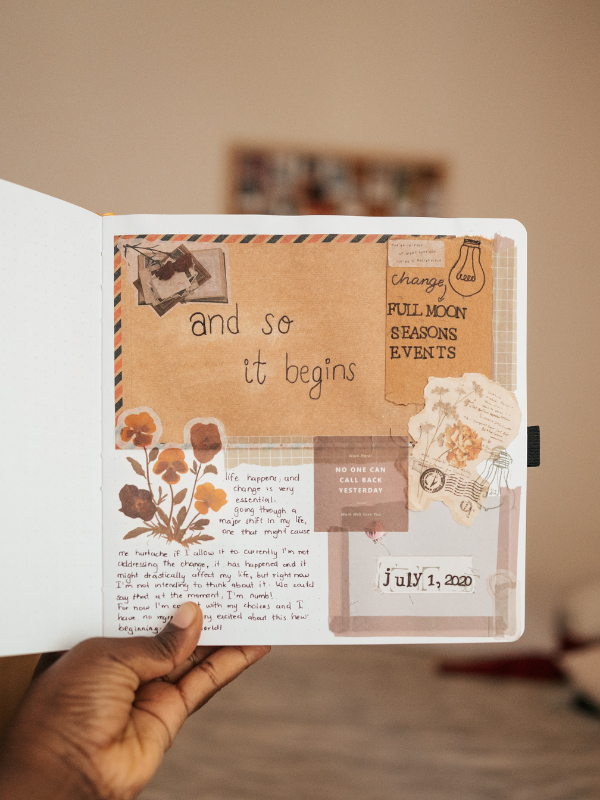 and so
it begins
change
FULL MOON
SEASONS
EVENTS
life happens, and
change is very
essential.
going through a
major shift in my life,
one that might cause
me hurtache if I allow it to currently I'm not
addressing the change, it has happened and it
might drastically affect my life, but right now
I'm not intending to think about it. We could
say that at the moment, I'm numb!
For now I'm with my choices and I
have no very excited about this new
beginning
NO ONE CAN
CALL BACK
YESTERDAY
july 1, 2020